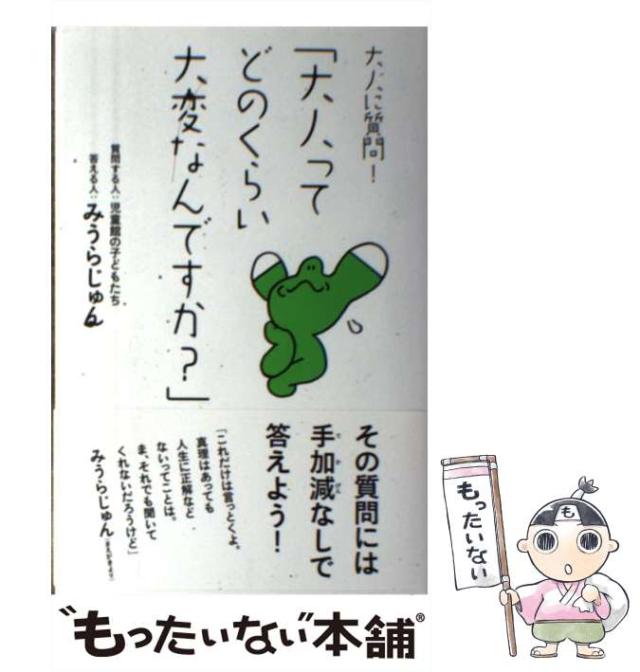 大人に質問!
「大人って
どのくらい
大変なんですか?」
質問する人:児童館の子どもたち
答える人:みうらじゅん
その質問には
手加減なしで
てかげん
答えよう!
「これだけは言っとくよ。
真理はあっても
人生に正解など
ないってことは。
ま、それでも聞いて
くれないだろうけど」
みうらじゅん(まえがきより)
"もったいない"本舗®
もったいない
も